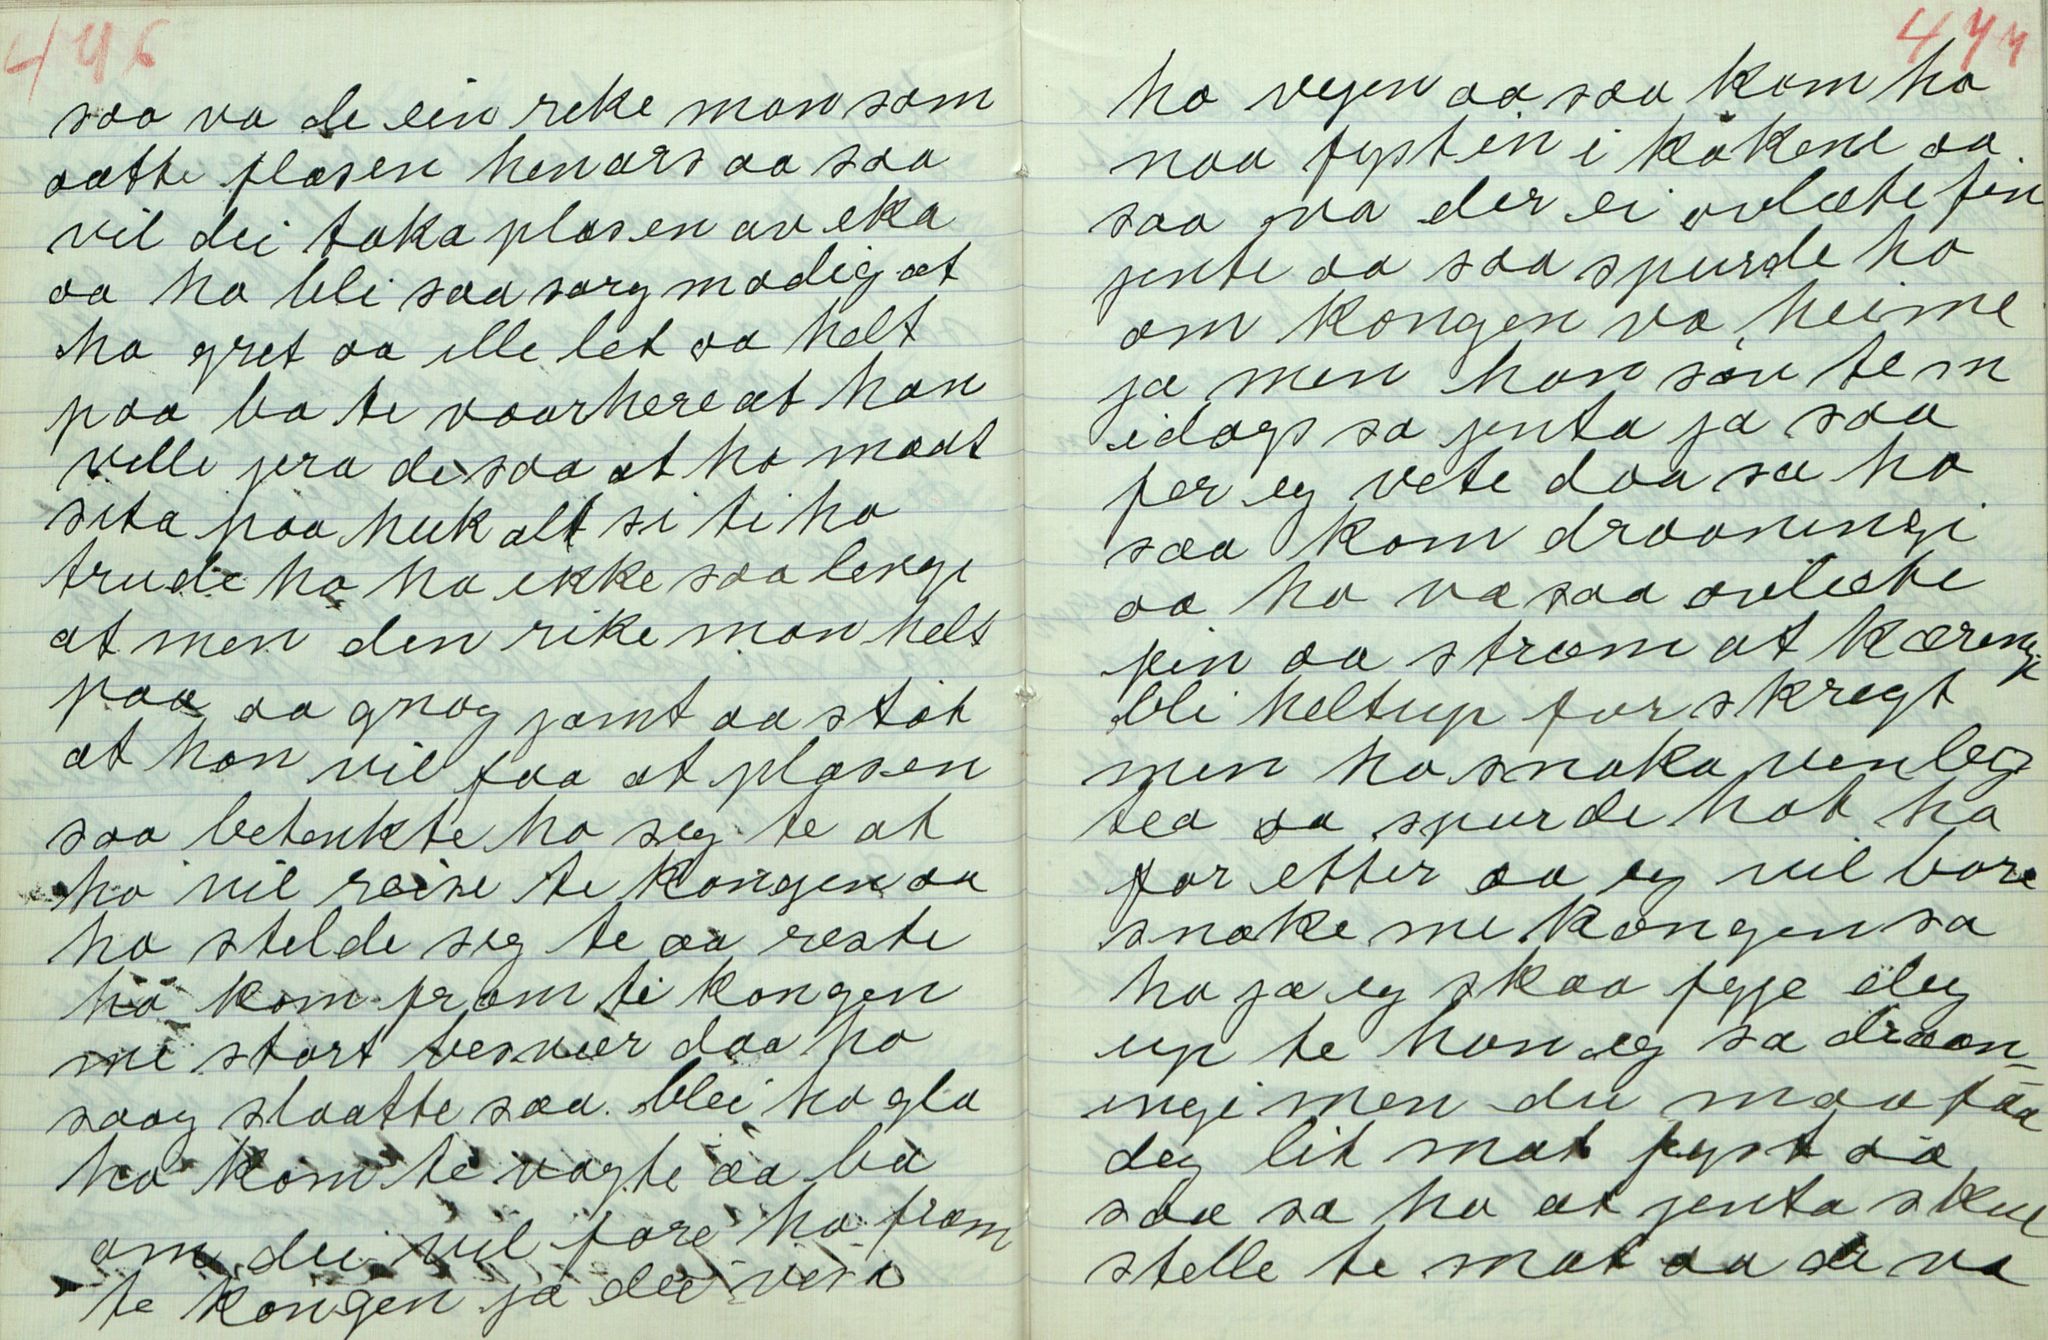 446
saa va de ein reke man som
aatte plasen henars aa saa
vil dei taka plasen av eka
aa ho bli saa sorg modig at
ho gret aa ille let aa helt
paa ba te vaarhere at han
ville jera de saa at ho maat
sita paa huk alt si ti ho
trude ho ha ikke saa lenge
at men den rike man helt
paa aa gnog jamt aa støt
at han vil faa at plasen
saa betenkte ho seg te at
ho vil reise te kongen aa
ho stelde seg te aa reste
ho kom fram ti kongen
me stort besvær daa ho
saag slaatte saa blei ho gla
ho kom te vagte aa ba
om dei vil føre ho fram
te kongen ja dei visa
447
ho vegen aa saa kom ho
naa fyst in i køkene aa
saa va der ei avlæte fin
jente aa saa spurde ho
om kongen va heime
ja men han søv tem
idags sa jenta ja saa
fer eg vete daa sa ho
saa kom draaningi
aa ho va saa avlæte
fin aa stram at kæringi
bli heltup forskregt
men ho snaka venleg
tea aa spurde hot ho
for etter aa eg vil bare
snake me kongen sa
ho ja eg skaa fyje deg
up te han eg sa draan-
ingi men du maa faa
deg lit mat fyst aa
saa sa ho at jenta skul
stelle te mat aa de va